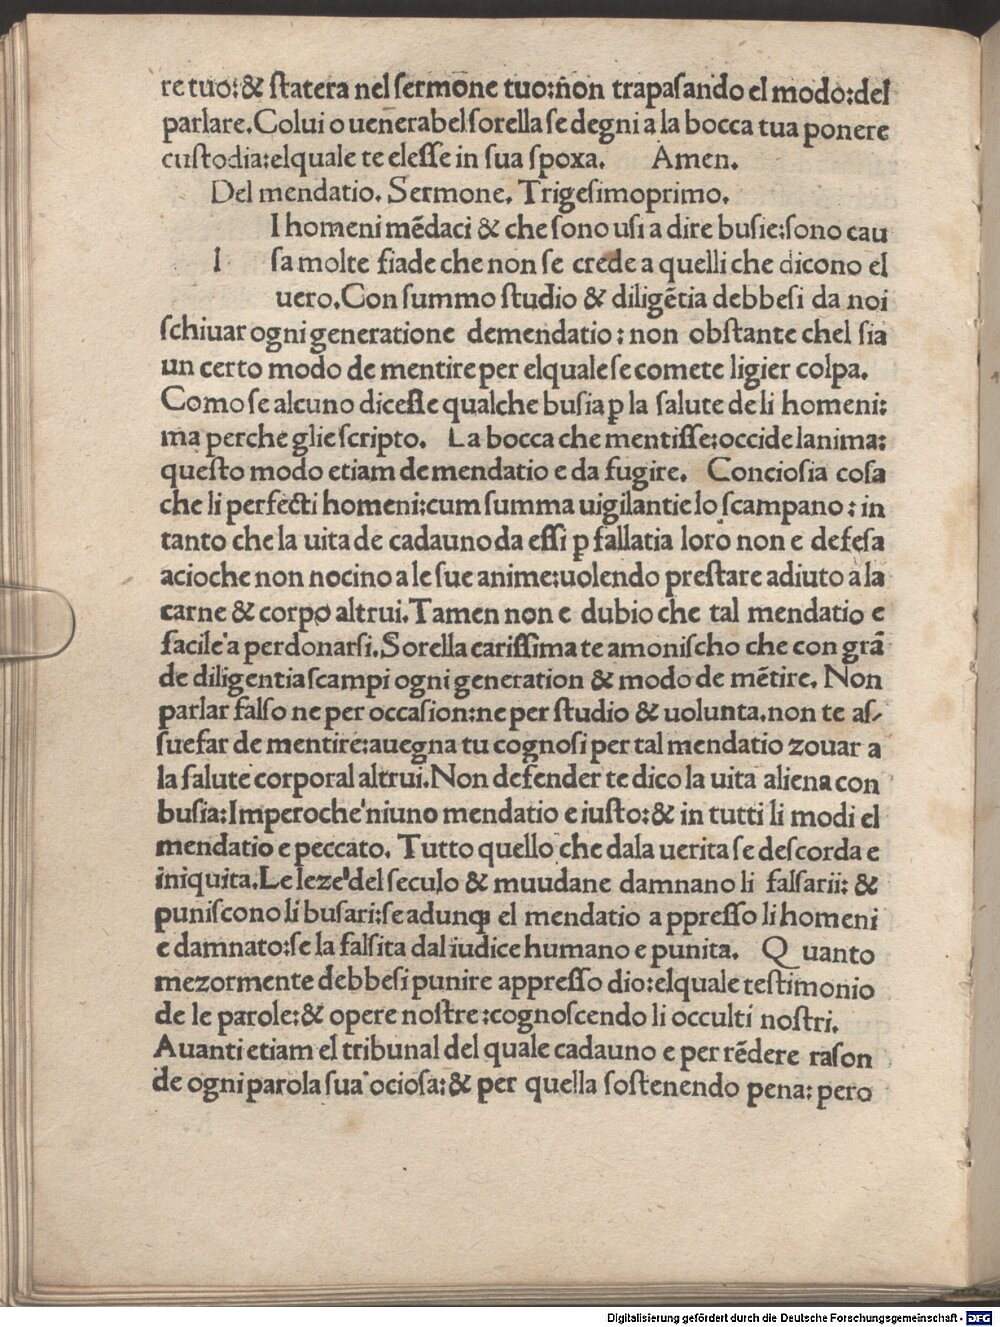 re tuo:& ſtatera nel ſermone tuo:nōn trapaſando el modo:del
parlare.Colui o uenerabel ſorella ſe degni a la bocca tua ponere
cuſtodia:elquale te eleſſe in ſua ſpoxa. Amen.
Del mendatio. Sermone. Trigeſimoprimo.
I homeni mēdaci & che ſono uſi a dire buſie:ſono cau
I ſa molte fiade che non ſe crede a quelli che dicono el
uero.Con ſummo ſtudio & diligētia debbeſi da noi
ſchiuar ogni generatione demendatio: non obſtante chel ſia
un certo modo de mentire per elquale ſe comete ligier colpa.
Como ſe alcuno diceſſe qualche buſia ꝑ la ſalute de li homeni:
ma perche glie ſcripto. La bocca che mentiſſe:occide lanima:
queſto modo etiam de mendatio e da fugire. Concioſia coſa
che li perfecti homeni:cum ſumma uigilantie lo ſcampano: in
tanto che la uita de cadauno da eſſi ꝑ fallatia loro non e defeſa
acioche non nocino a le ſue anime:uolendo preſtare adiuto a la
carne & corpo altrui.Tamen non e dubio che tal mendatio e
facile a perdonarſi.Sorella cariſſima te amoniſcho che con grā
de diligentia ſcampi ogni generation & modo de mētire. Non
parlar falſo ne per occaſion:ne per ſtudio & uolunta.non te aſ-
ſuefar de mentire:auegna tu cognoſi per tal mendatio zouar a
la ſalute corporal altrui.Non defender te dico la uita aliena con
buſia:Imperoche niuno mendatio e iuſto:& in tutti li modi el
mendatio e peccato. Tutto quello che dala uerita ſe deſcorda e
iniquita.Le leze del ſeculo & muudane damnano li falſarii: &
puniſcono li buſari:ſe adunqꝫ el mendatio a ppreſſo li homeni
e damnato:ſe la falſita dal iudice humano e punita. Q uanto
mezormente debbeſi punire appreſſo dio:elquale teſtimonio
de le parole:& opere noſtre:cognoſcendo li occulti noſtri.
Auanti etiam el tribunal del quale cadauno e per rēdere raſon
de ogni parola ſua ocioſa:& per quella ſoſtenendo pena: pero
Digitalisierung gefördert durch die Deutsche Forschungsgemeinschaft - DFG